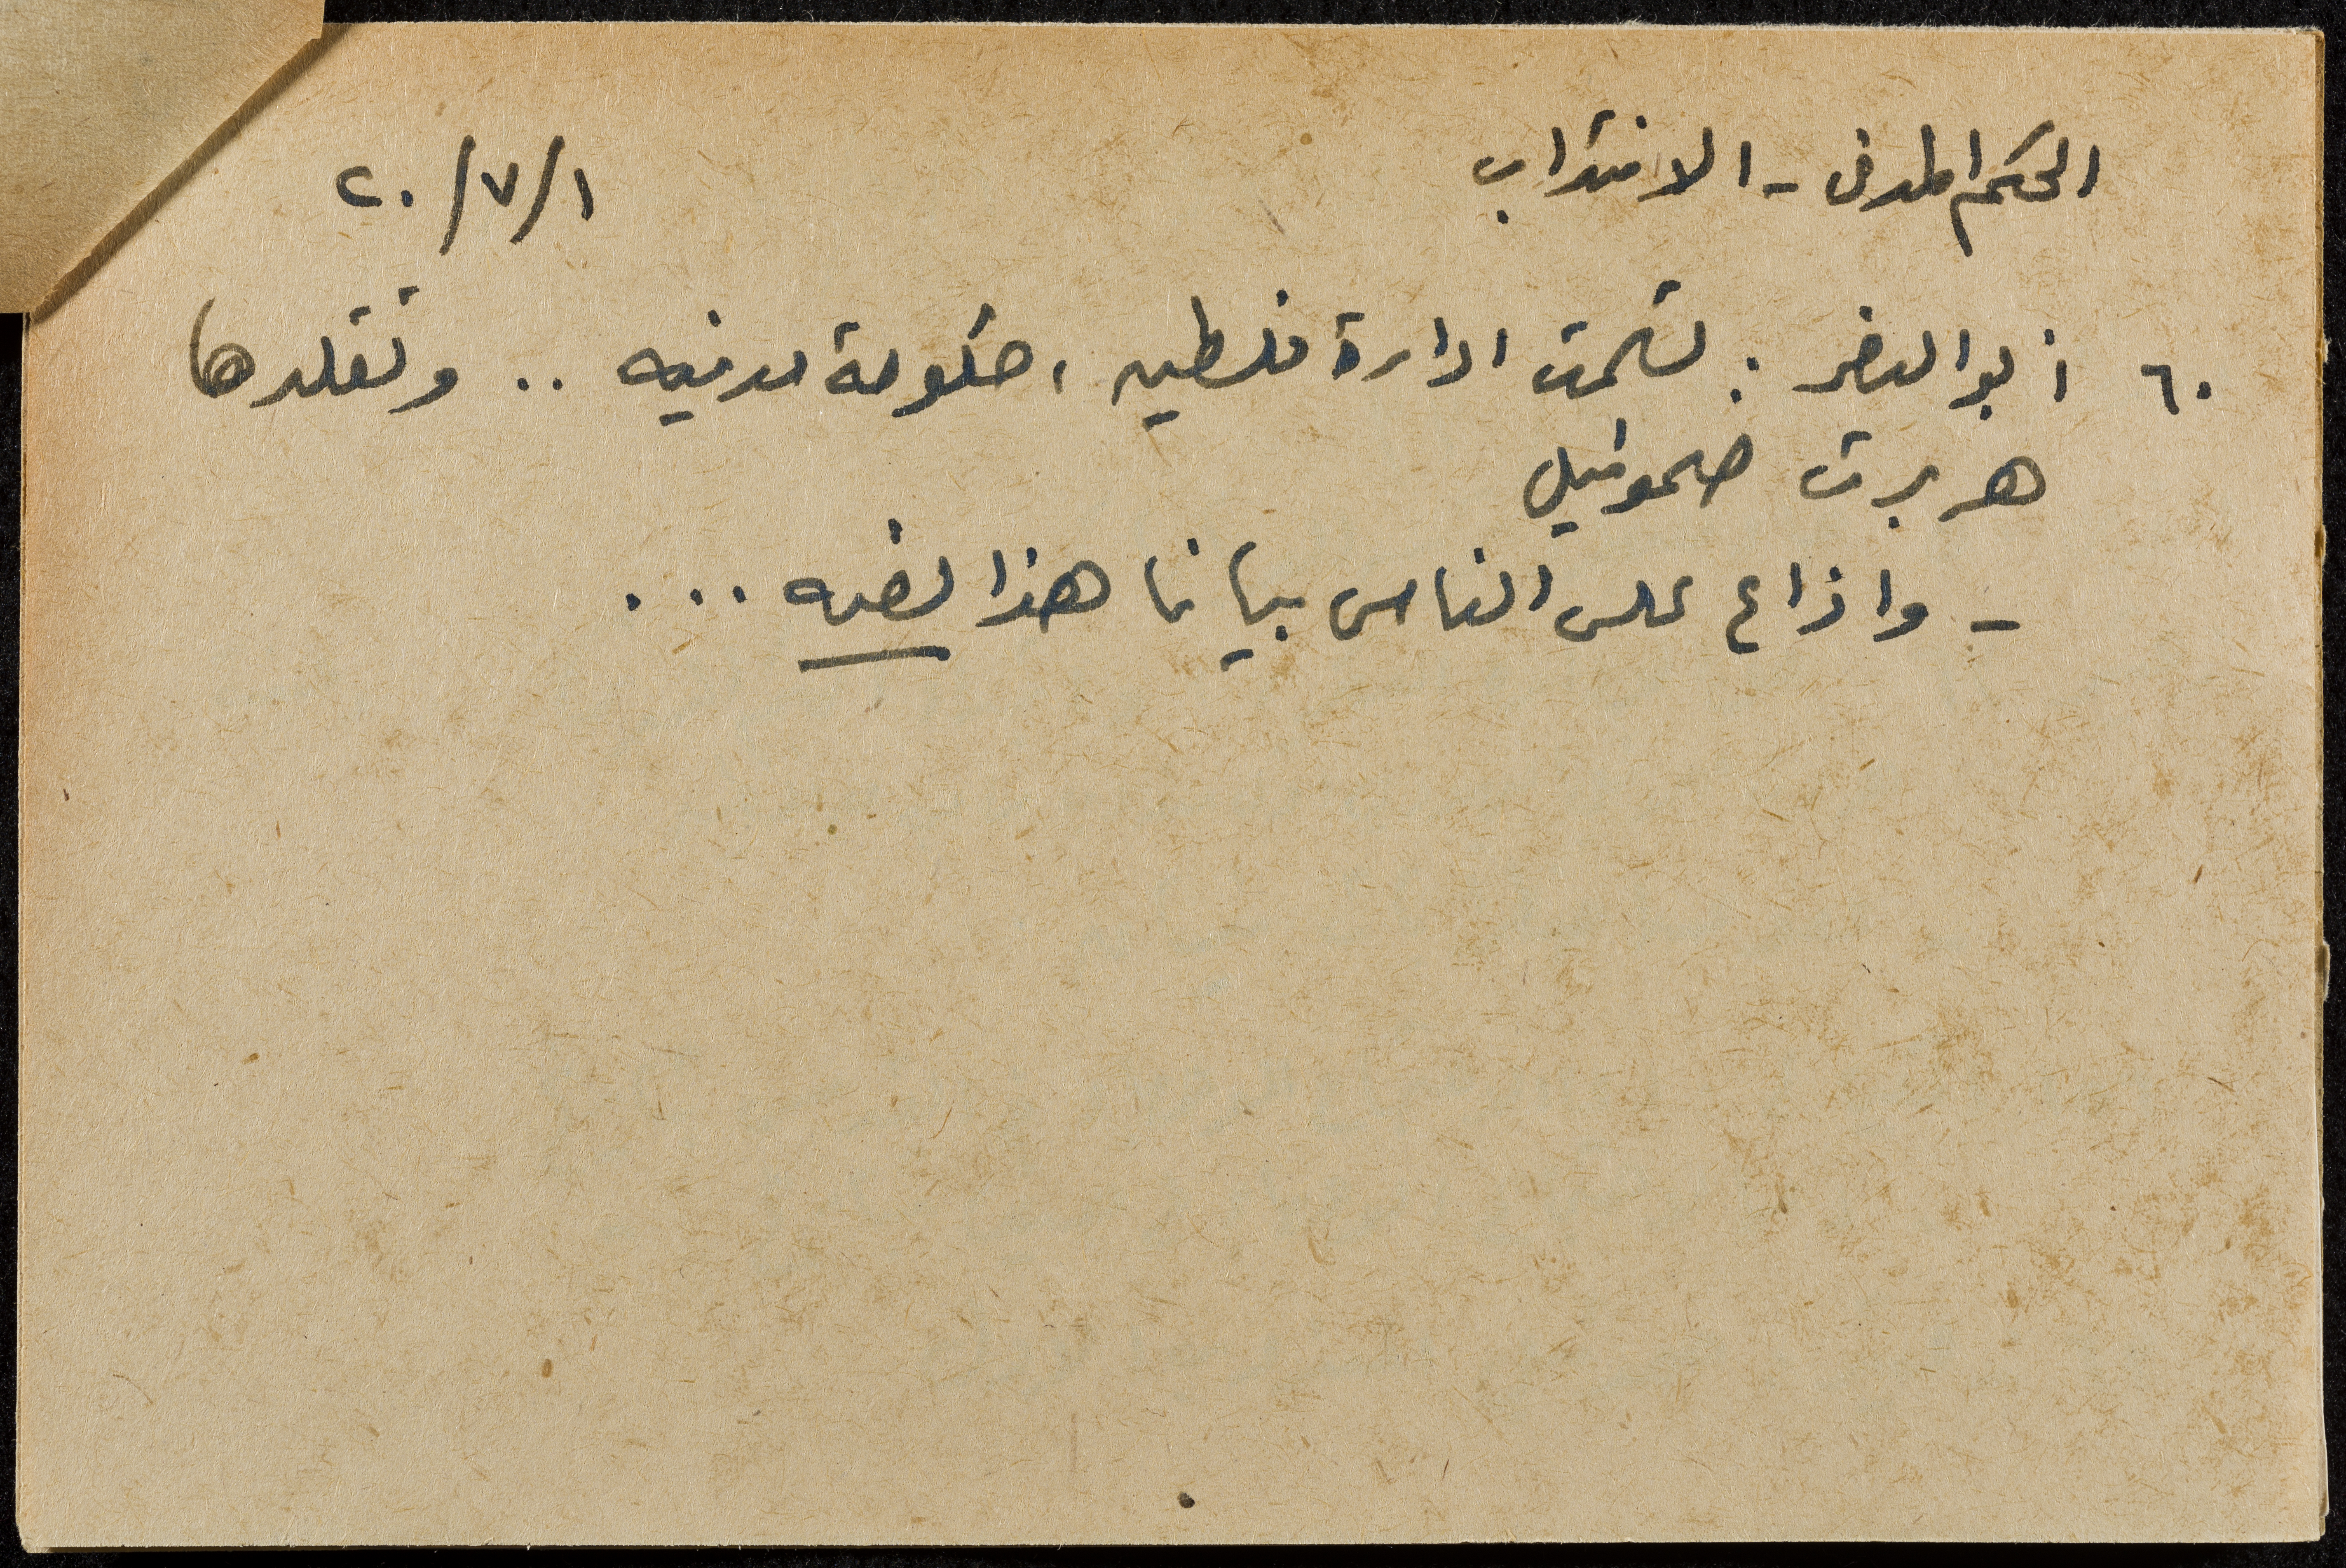 الحكم المدني - الانتداب ١/٧/٢٠
٦٠ أبو النصر : تسلمت ادارة فلسطين ، حكومة مدنيه .. وتقلدها
هربرت صموئيل
- واذاع على الناس بيانا هذا نصه ...